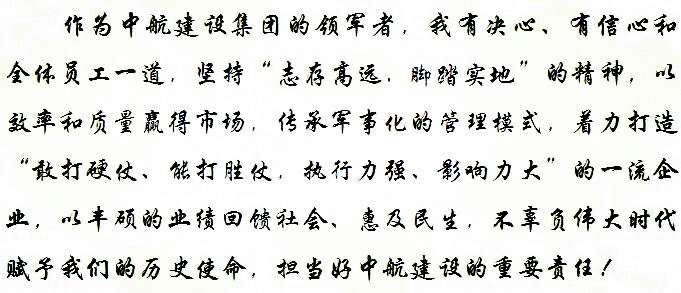 作为中航建设集团的领军者，我有决心、有信心和
全体员工一道，坚持“志存高远，脚踏实地”的精神，以
效率和质量赢得市场，传承军事化的管理模式，着力打造
“敢打硬仗、能打胜仗，执行力强、影响力大”的一流企
业，以丰硕的业绩回馈社会、惠及民生，不辜负伟大时代
赋予我们的历史使命，担当好中航建设的重要责任！